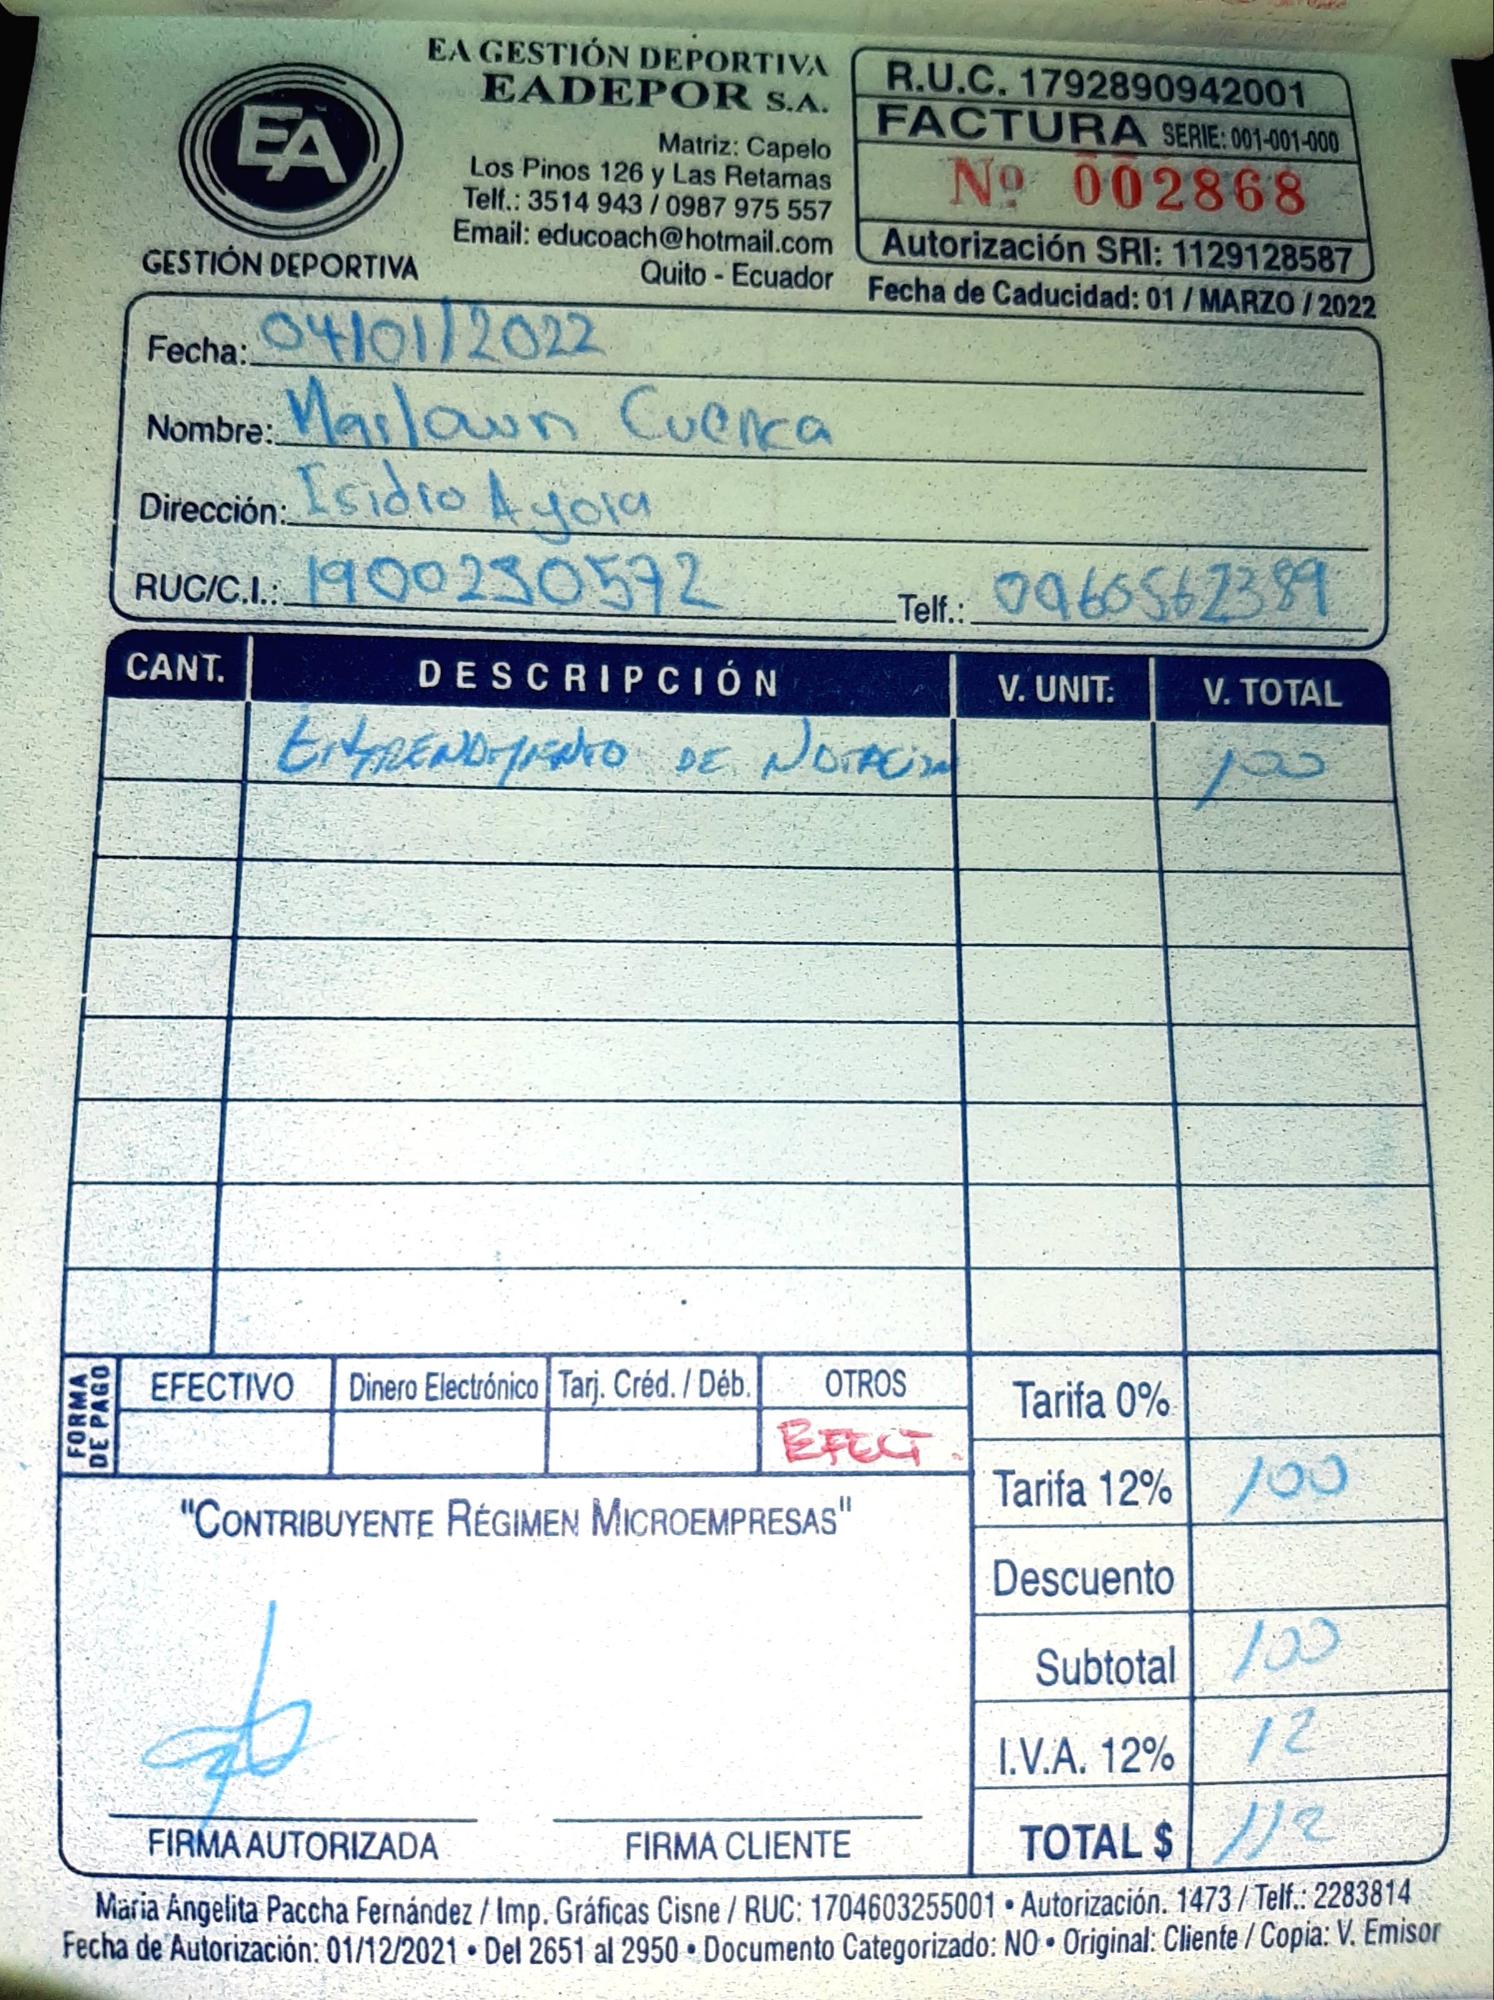 EA GESTIÓN DEPORTIVA
EADEPOR S.A.
EA
GESTIÓN DEPORTIVA
Matriz: Capelo
Los Pinos 126 y Las Retamas
Telf.: 3514 943 / 0987 975 557
Email: educoach@hotmail.com
Quito - Ecuador
R.U.C. 1792890942001
FACTURA SERIE: 001-001-000
Nº 002868
Autorización SRI: 1129128587
Fecha de Caducidad: 01 / MARZO / 2022
Fecha: 04/01/2022
Nombre: Marlown Cuenca
Dirección: Isidro Ayora
RUC/C.I.: 1900230572 Telf.: 0960562389
CANT. DESCRIPCIÓN V. UNIT. V. TOTAL
DE 100
FORMA DE PAGO
EFECTIVO Dinero Electrónico Tarj. Créd. / Déb. OTROS
EFECT.
Tarifa 0%
Tarifa 12% 100
Descuento
Subtotal 100
I.V.A. 12% 12
TOTAL $ 112
"CONTRIBUYENTE RÉGIMEN MICROEMPRESAS"
FIRMA AUTORIZADA FIRMA CLIENTE
Maria Angelita Paccha Fernández / Imp. Gráficas Cisne / RUC: 1704603255001 • Autorización. 1473 / Telf.: 2283814
Fecha de Autorización: 01/12/2021 • Del 2651 al 2950 • Documento Categorizado: NO • Original: Cliente / Copia: V. Emisor